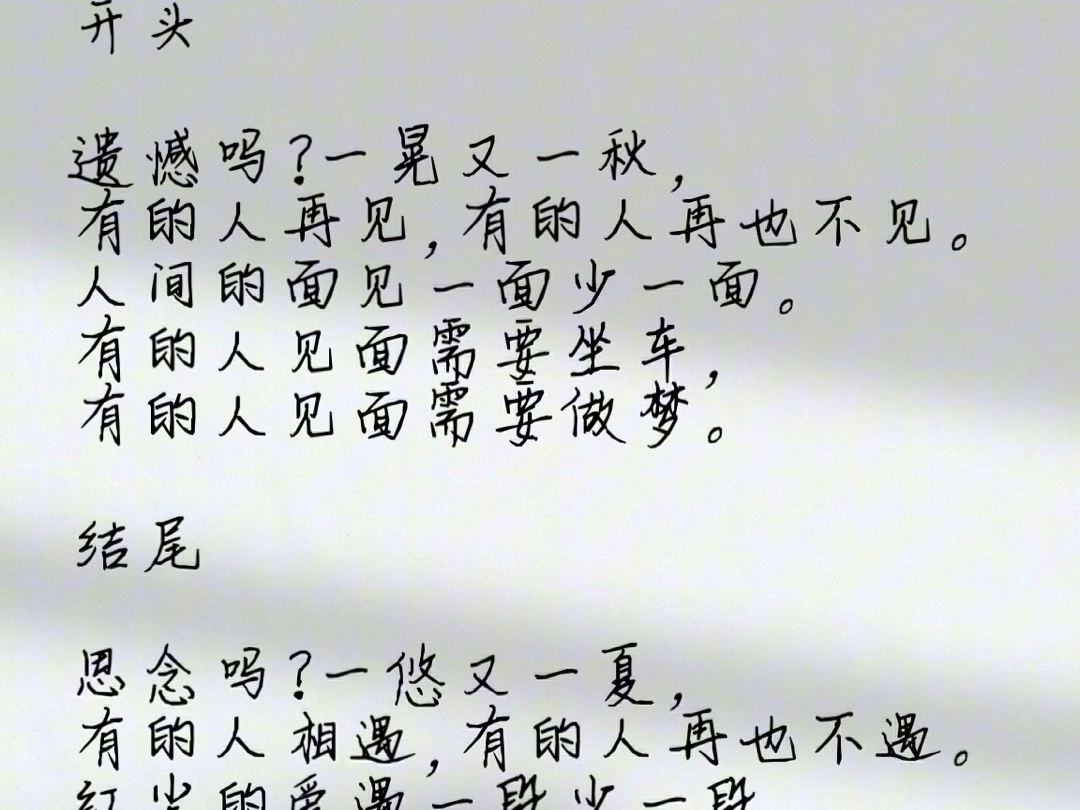 开头
遗憾吗?一晃又一秋,
有的人再见,有的人再也不见。
人间的面见一面少一面。
有的人见面需要坐车,
有的人见面需要做梦。
结尾
思念吗?一悠又一夏,
有的人相遇,有的人再也不遇。
红尘的爱遇一段少一段